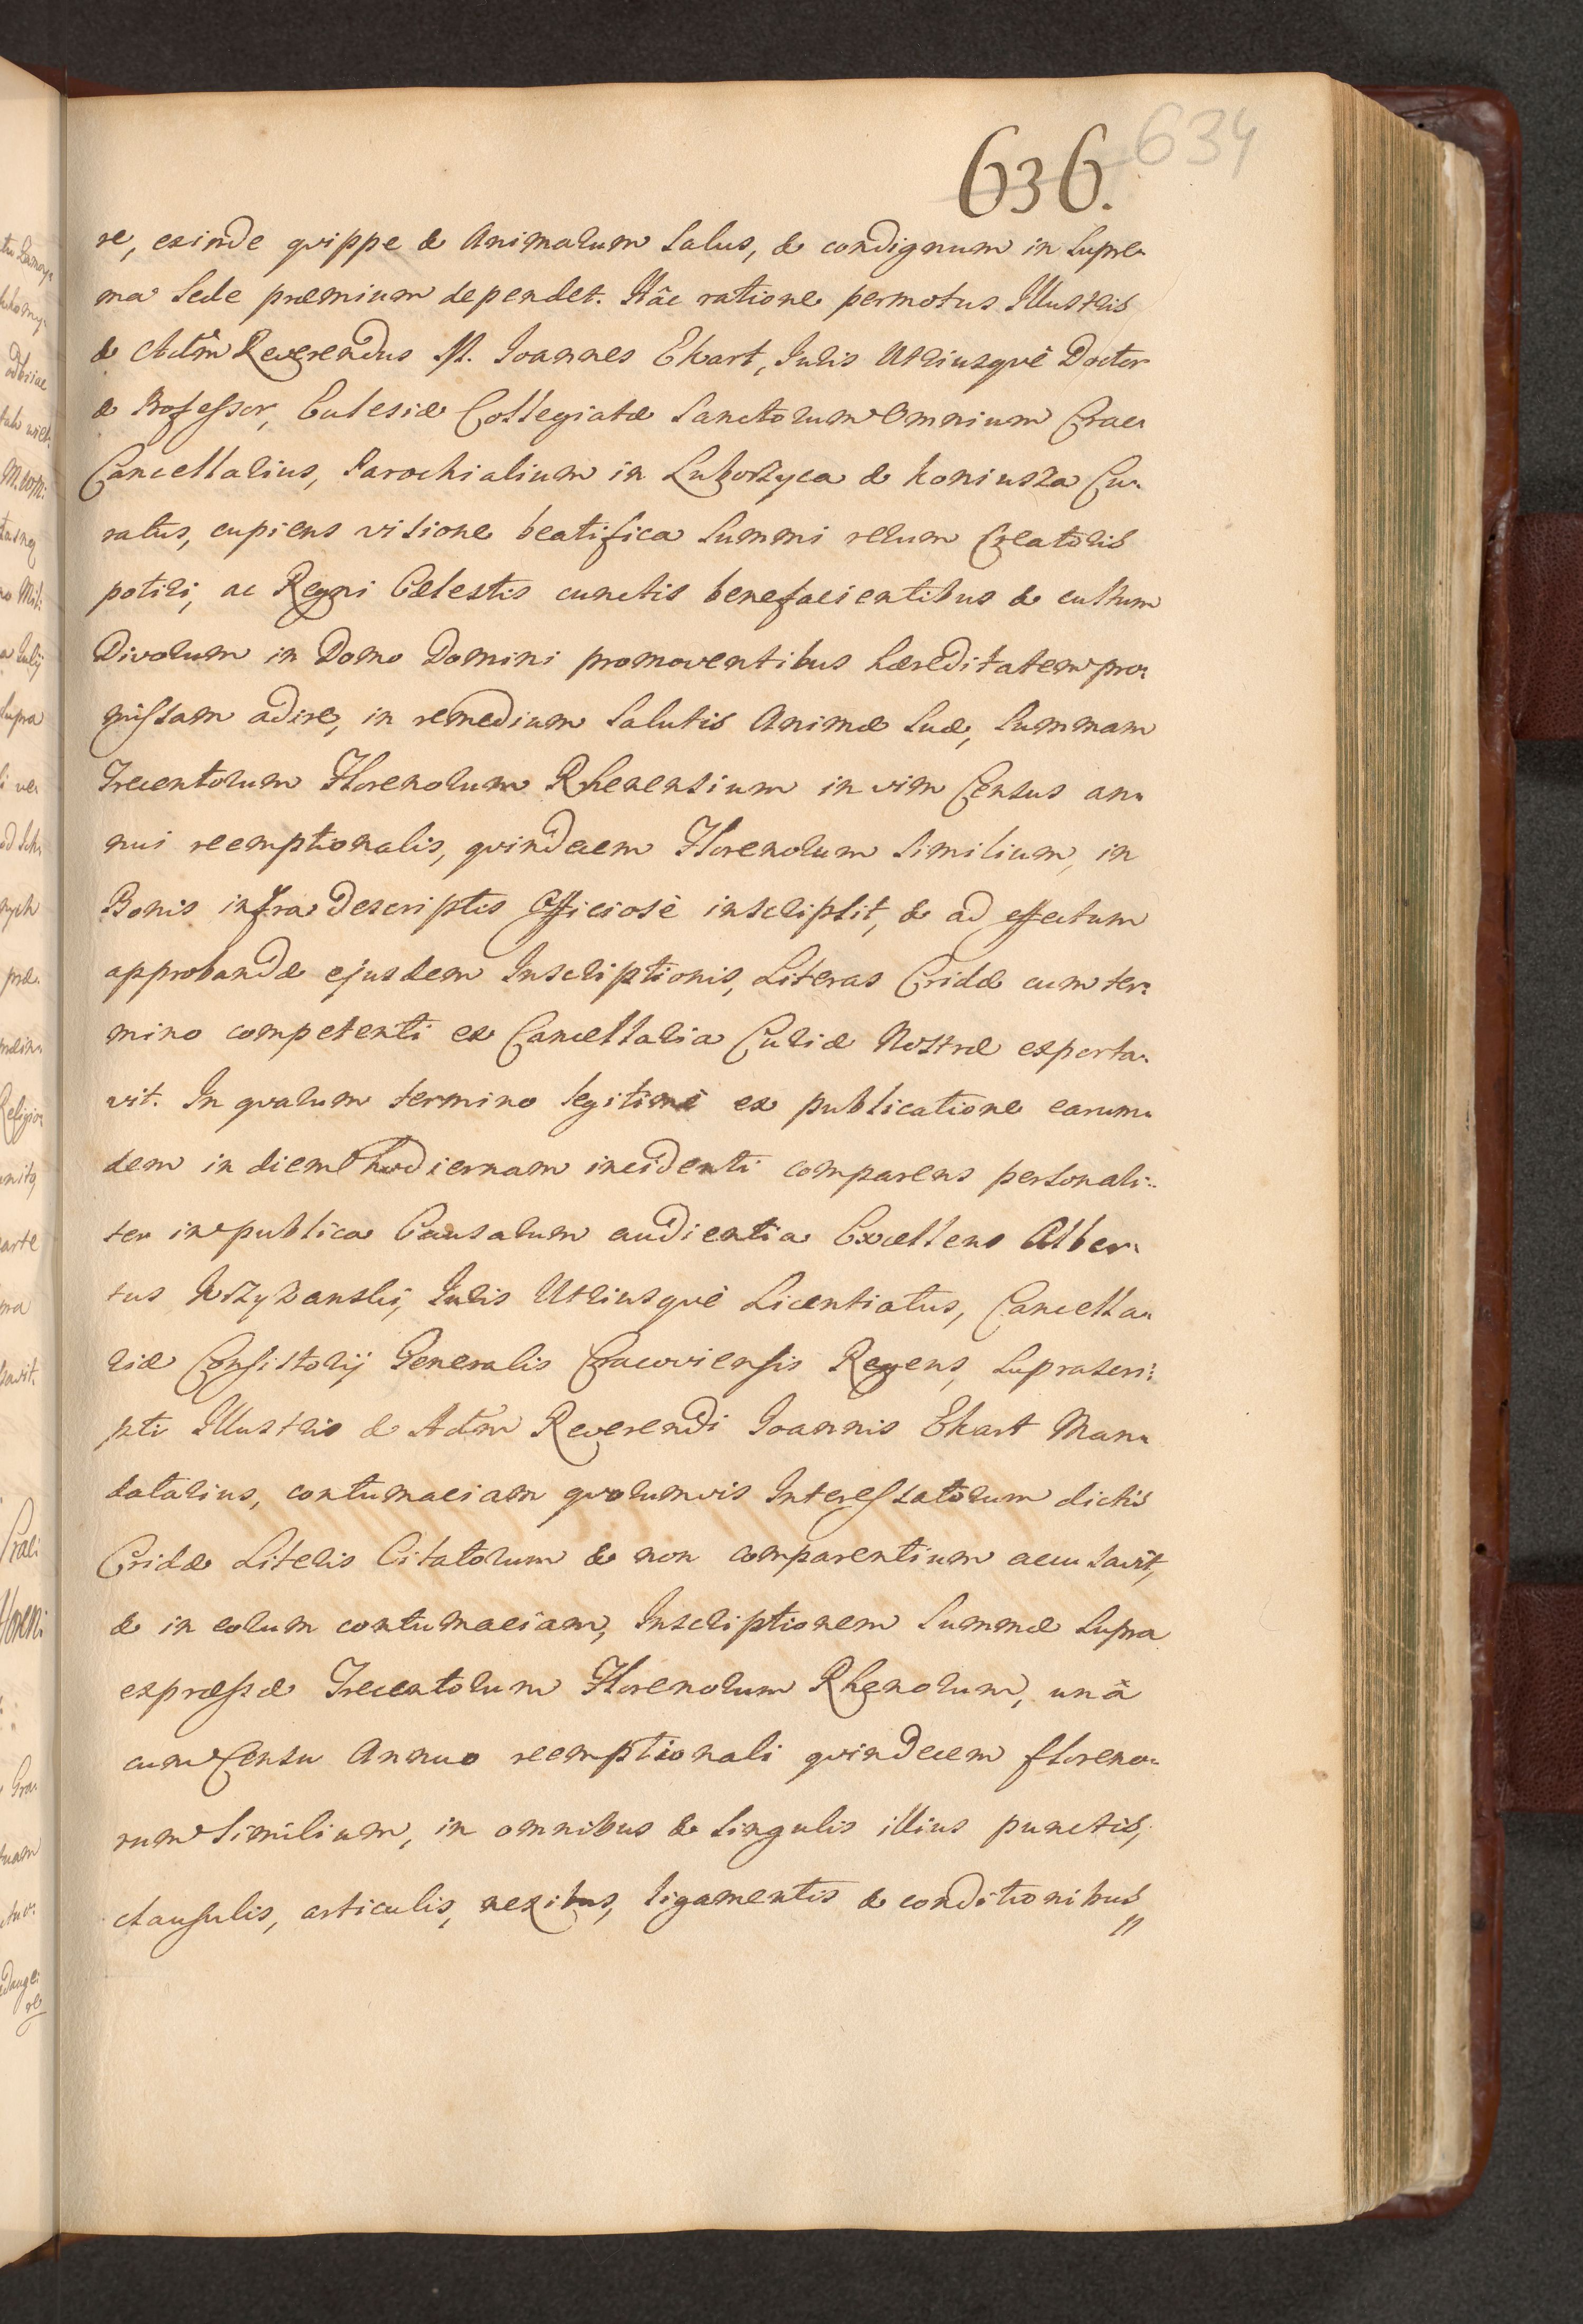 636. 634
re, exinde quippe & Animarum Salus, & condignum in Supre-
ma Sede præmium dependet. Hâc ratione permotus Illustris
& Adm̃ Reverendus M. Joannes Ekart, Juris Utriusquè Doctor
& Professor, Eclesiæ Collegiatæ Sanctorum Omnium Crac:
Cancellarius, Parochialium in Luborzyca & Koniusza Cu-
ratus, cupiens visione beatifica Summi rerum Creatoris
potiri, ac Regni Cælestis cunctis benefacientibus & cultum
Divorum in Domo Domini promoventibus hæreditatem pro-
missam adire, in remedium Salutis Animæ Suæ, Summam
Trecentorum Florenorum Rhenensium in vim Census an-
nui reemptionalis, quindecem Florenorum Similium, in
Bonis infra descriptis Officiosè inscripsit, & ad effectum
approbandæ ejusdem Inscriptionis, Literas Cridæ cum ter-
mino competenti ex Cancellaria Curiæ Nostræ exporta-
vit. In quarum termino legitimè ex publicatione earum-
dem in diem hodiernam incidenti comparens personali-
ter in publica Causarum audientia Excellens Alber-
tus Krzyzanski, Juris Utriusquè Licentiatus, Cancella-
riæ Consistorij Generalis Cracoviensis Regens, Suprascri-
pti Illustris & Adm̃ Reverendi Joannis Ekart Man-
datarius, contumaciam quorumvis Interessatorum dictis
Cridæ Literis Citatorum & non comparentium accusavit,
& in eorum contumaciam, Inscriptionem Summæ Supra
expræssæ Trecentorum Florenorum Rhenorum, unà
cum Censu Annuo reemptionali quindecem floreno-
rum Similium, in omnibus & Singulis illius punctis,
clausulis, articulis, nexibus, ligamentis & conditionibus